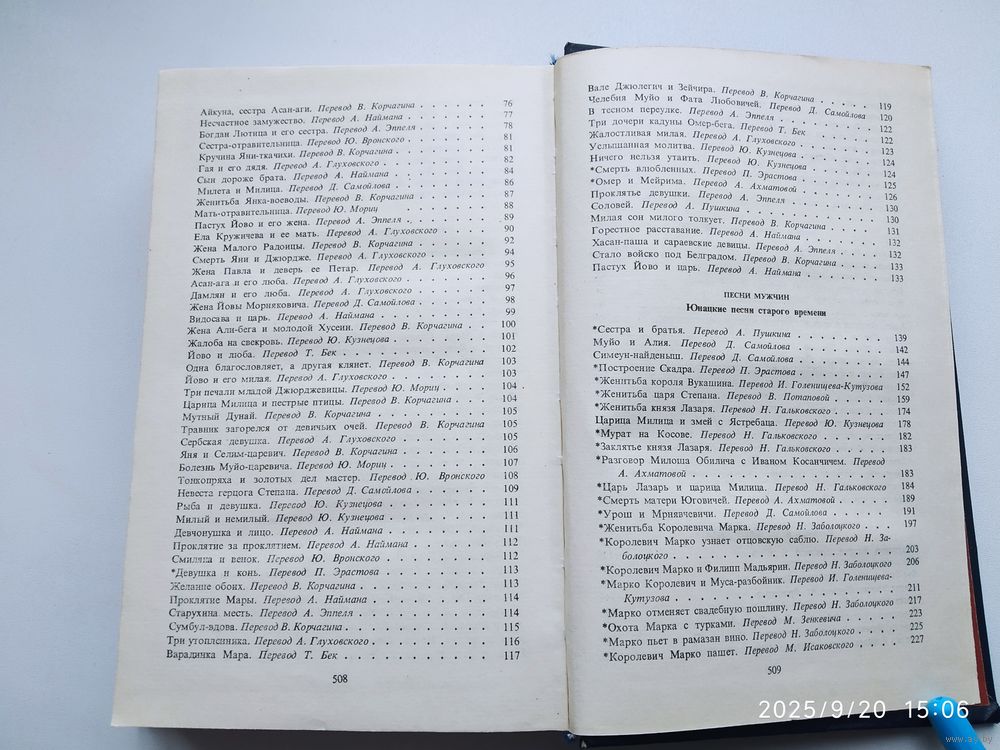 Айкуна, сестра Асан-аги. Перевод В. Корчагина . . . . . . 76
Несчастное замужество. Перевод А. Наймана . . . . . . 77
Богдан Лютица и его сестра. Перевод А. Эппеля . . . . . 78
Сестра-отравительница. Перевод Ю. Вронского . . . . . . 81
Кручина Яни-ткачихи. Перевод В. Корчагина . . . . . . 81
Гая и его дядя. Перевод А. Глуховского . . . . . . 82
Сын дороже брата. Перевод А. Наймана . . . . . . 84
Милета и Милица. Перевод Д. Самойлова . . . . . . 86
Женитьба Янка-воеводы. Перевод В. Корчагина . . . . . . 87
Мать-отравительница. Перевод Ю. Мориц . . . . . . 88
Пастух Йово и его жена. Перевод А. Эппеля . . . . . . 89
Ела Кружичева и ее мать. Перевод А. Глуховского . . . . 90
Жена Малого Радоицы. Перевод В. Корчагина . . . . . 92
Смерть Яни и Джюрдже. Перевод А. Глуховского . . . . . 94
Жена Павла и деверь ее Петар. Перевод А. Глуховского 95
Асан-ага и его люба. Перевод А. Глуховского . . . . . . 96
Дамлян и его люба. Перевод А. Глуховского . . . . . . 97
Жена Йовы Морняковича. Перевод Д. Самойлова . . . . . 98
Видосава и царь. Перевод А. Наймана . . . . . . 99
Жена Али-бега и молодой Хусеин. Перевод В. Корчагина . . 100
Жалоба на свекровь. Перевод Ю. Кузнецова . . . . . . 101
Йово и люба. Перевод Т. Бек . . . . . . 102
Одна благословляет, а другая клянет. Перевод В. Корчагина 103
Йово и его милая. Перевод А. Глуховского . . . . . . 103
Три печали младой Джюрджевицы. Перевод Ю. Мориц . . . 104
Царица Милица и пестрые птицы. Перевод В. Корчагина . . 104
Мутный Дунай. Перевод В. Корчагина . . . . . . 105
Травник загорелся от девичьих очей. Перевод В. Корчагина 105
Сербская девушка. Перевод А. Глуховского . . . . . . 105
Яня и Селим-царевич. Перевод В. Корчагина . . . . . . 106
Болезнь Муйо-царевича. Перевод Ю. Мориц . . . . . . 107
Тонкопряха и золотых дел мастер. Перевод Ю. Вронского 108
Невеста герцога Степана. Перевод Д. Самойлова . . . . . 109
Рыба и девушка. Перевод Ю. Кузнецова . . . . . . 111
Милый и немилый. Перевод Ю. Кузнецова . . . . . . 111
Девчонушка и лицо. Перевод А. Наймана . . . . . . 111
Проклятие за проклятием. Перевод А. Наймана . . . . . . 112
Смиляна и венок. Перевод Ю. Вронского . . . . . . 112
*Девушка и конь. Перевод П. Эрастова . . . . . . 113
Желание обоих. Перевод В. Корчагина . . . . . . 113
Проклятие Мары. Перевод А. Наймана . . . . . . 114
Старухина месть. Перевод А. Эппеля . . . . . . 114
Сумбул-вдова. Перевод В. Корчагина . . . . . . 115
Три утопленника. Перевод А. Глуховского . . . . . . 116
Варадинка Мара. Перевод Т. Бек . . . . . . 117
508
Вале Джюлегич и Зейчира. Перевод В. Корчагина . . . . . 119
Челебия Муйо и Фата Любовичей. Перевод Д. Самойлова 120
В тесном переулке. Перевод А. Эппеля . . . . . . 122
Три дочери кадуны Омер-бега. Перевод Т. Бек . . . . . 122
Жалостливая милая. Перевод А. Глуховского . . . . . . 122
Услышанная молитва. Перевод Ю. Кузнецова . . . . . . 123
Ничего нельзя утаить. Перевод Ю. Кузнецова . . . . . . 124
*Смерть влюбленных. Перевод П. Эрастова . . . . . . 124
*Омер и Мейрима. Перевод А. Ахматовой . . . . . . 125
Проклятье девушки. Перевод А. Эппеля . . . . . . 126
Соловей. Перевод А. Пушкина . . . . . . 130
Милая сон милого толкует. Перевод В. Корчагина . . . . . 130
Горестное расставание. Перевод А. Наймана . . . . . . 131
Хасан-паша и сараевские девицы. Перевод А. Эппеля . . . 132
Стало войско под Белградом. Перевод В. Корчагина . . . . 132
Пастух Йово и царь. Перевод А. Наймана . . . . . . 133
133
ПЕСНИ МУЖЧИН
Юнацкие песни старого времени
*Сестра и братья. Перевод А. Пушкина . . . . . . 139
Муйо и Алия. Перевод Д. Самойлова . . . . . . 142
Симеун-найденыш. Перевод Д. Самойлова . . . . . . 144
*Построение Скадра. Перевод П. Эрастова . . . . . . 147
*Женитьба короля Вукашина. Перевод И. Голенищева-Кутузова 152
*Женитьба царя Степана. Перевод В. Потаповой . . . . . 159
*Женитьба князя Лазаря. Перевод Н. Гальковского . . . . . 174
Царица Милица и змей с Ястребаца. Перевод Ю. Кузнецова 178
*Мурат на Косове. Перевод Н. Гальковского . . . . . . 182
*Заклятье князя Лазаря. Перевод Н. Гальковского . . . . . 183
*Разговор Милоша Обилича с Иваном Косанчичем. Перевод
А. Ахматовой . . . . . . 183
*Царь Лазарь и царица Милица. Перевод Н. Гальковского 184
*Смерть матери Юговичей. Перевод А. Ахматовой . . . . . 189
*Урош и Мрнявчевичи. Перевод Д. Самойлова . . . . . . 191
*Женитьба Королевича Марка. Перевод Н. Заболоцкого . . . 197
*Королевич Марко узнает отцовскую саблю. Перевод Н. За-
болоцкого . . . . . . 203
*Королевич Марко и Филипп Мадьярин. Перевод Н. Заболоцкого 206
*Марко Королевич и Муса-разбойник. Перевод И. Голенищева-
Кутузова . . . . . . 211
*Марко отменяет свадебную пошлину. Перевод Н. Заболоцкого 217
*Охота Марка с турками. Перевод М. Зенкевича . . . . . 223
*Марко пьет в рамазан вино. Перевод Н. Заболоцкого . . . . 225
*Королевич Марко пашет. Перевод М. Исаковского . . . . . 227
509
2025/9/20 15:06